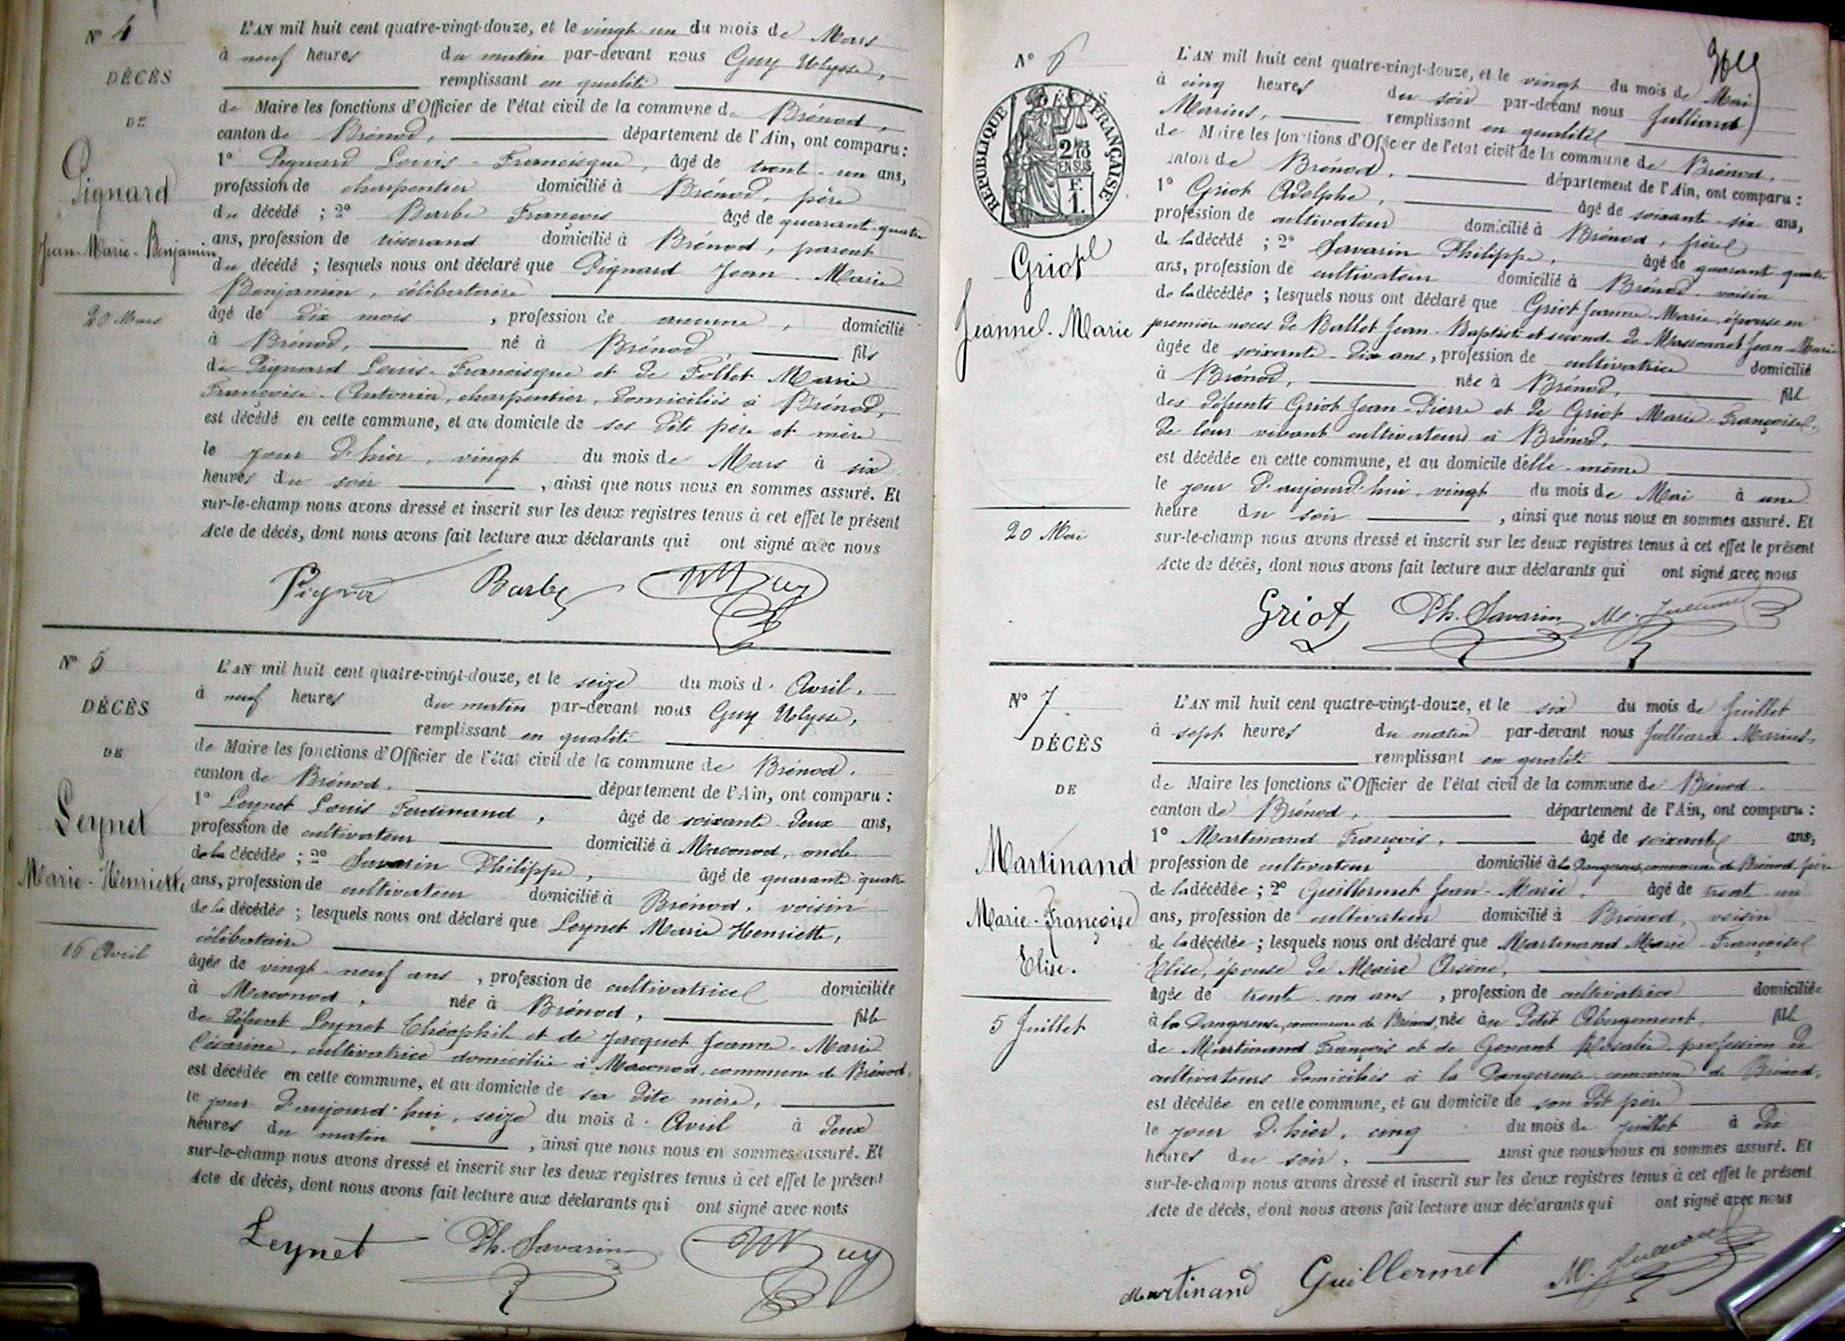 N° 4
DÉCÈS
DE
Pignard
Jean-Marie-Benjamin
20 Mars
L'AN mil huit cent quatre-vingt-douze, et le vingt un du mois de Mars
à neuf heures du matin par-devant nous Guy Ulysse,
remplissant en qualité
de Maire les fonctions d'Officier de l'état civil de la commune de Brénod,
canton de Brénod, département de l'Ain, ont comparu :
1° Pignard Louis-Francisque, âgé de trent-un ans,
profession de charpentier domicilié à Brénod, père
du décédé ; 2° Barbe François âgé de quarant-quatre
ans, profession de tisserand domicilié à Brénod, parent
du décédé ; lesquels nous ont déclaré que Pignard Jean-Marie
Benjamin, célibataire
âgé de dix mois, profession de aucune, domicilié
à Brénod, né à Brénod, fils
de Pignard Louis-Francisque et de Follet Marie
Françoise-Antonia, charpentier, domiciliés à Brénod,
est décédé en cette commune, et au domicile de ses dits père et mère
le jour d'hier, vingt du mois de Mars à six
heures du soir, ainsi que nous nous en sommes assuré. Et
sur-le-champ nous avons dressé et inscrit sur les deux registres tenus à cet effet le présent
Acte de décès, dont nous avons fait lecture aux déclarants qui ont signé avec nous
Barbe Guy
N° 5
DÉCÈS
DE
Leynet
Marie-Henriette
16 Avril
L'AN mil huit cent quatre-vingt-douze, et le seize du mois d'Avril,
à neuf heures du matin par-devant nous Guy Ulysse,
remplissant en qualité
de Maire les fonctions d'Officier de l'état civil de la commune de Brénod.
canton de Brénod, département de l'Ain, ont comparu :
1° Leynet Louis Ferdinand, âgé de soixante-deux ans,
profession de cultivateur domicilié à Maconod, oncle
de la décédée ; 2° Savarin Philippe, âgé de quarant-quatre
ans, profession de cultivateur domicilié à Brénod, voisin
de la décédée ; lesquels nous ont déclaré que Leynet Marie Henriette,
célibataire
âgée de vingt-neuf ans, profession de cultivatrice domiciliée
à Maconod, née à Brénod, fille
de défunt Leynet Théophile et de Jacquet Jeanne-Marie
Césarine, cultivatrice domiciliée à Maconod, commune de Brénod,
est décédée en cette commune, et au domicile de sa dite mère,
le jour d'aujourd'hui, seize du mois d'Avril à deux
heures du matin, ainsi que nous nous en sommes assuré. Et
sur-le-champ nous avons dressé et inscrit sur les deux registres tenus à cet effet le présent
Acte de décès, dont nous avons fait lecture aux déclarants qui ont signé avec nous
Leynet Ph. Savarin Guy
N° 6
RÉPUBLIQUE FRANÇAISE
Griot
Jeanne-Marie
20 Mai
L'AN mil huit cent quatre-vingt-douze, et le vingt du mois de Mai
à cinq heures du soir par-devant nous Julliard
Marius, remplissant en qualité
de Maire les fonctions d'Officier de l'état civil de la commune de Brénod,
canton de Brénod, département de l'Ain, ont comparu :
1° Griot Adolphe, âgé de soixante-six ans,
profession de cultivateur domicilié à Brénod, frère
de la décédée ; 2° Savarin Philippe, âgé de quarant-quatre
ans, profession de cultivateur domicilié à Brénod, voisin
de la décédée ; lesquels nous ont déclaré que Griot Jeanne-Marie, épouse en
première noces de Ballet Jean-Baptiste et second de Massonnet Jean-Marie
âgée de soixante-dix ans, profession de cultivatrice domicilié
à Brénod, née à Brénod, fille
des défunts Griot Jean-Pierre et de Griot Marie-Françoise,
de leur vivant cultivateurs à Brénod,
est décédée en cette commune, et au domicile d'elle-même
le jour d'aujourd'hui, vingt du mois de Mai à une
heure du soir, ainsi que nous nous en sommes assuré. Et
sur-le-champ nous avons dressé et inscrit sur les deux registres tenus à cet effet le présent
Acte de décès, dont nous avons fait lecture aux déclarants qui ont signé avec nous
Griot Ph. Savarin M. Julliard
N° 7
DÉCÈS
DE
Martinand
Marie-Françoise
Elise.
5 Juillet
L'AN mil huit cent quatre-vingt-douze, et le six du mois de Juillet
à sept heures du matin par-devant nous Julliard Marius,
remplissant en qualité
de Maire les fonctions d'Officier de l'état civil de la commune de Brénod.
canton de Brénod, département de l'Ain, ont comparu :
1° Martinand François, âgé de soixante ans,
profession de cultivateur domicilié à la Dangereuse, commune de Brénod, père
de la décédée ; 2° Guillermet Jean-Marie, âgé de trent-un
ans, profession de cultivateur domicilié à Brénod, voisin
de la décédée ; lesquels nous ont déclaré que Martinand Marie-Françoise
Elise, épouse de Maire Arsène,
âgée de trente-un ans, profession de cultivatrice domiciliée
à la Dangereuse, commune de Brénod, née au Petit Abergement, fille
de Martinand François et de Genant Rosalie, profession de
cultivateurs domiciliés à la Dangereuse, commune de Brénod,
est décédée en cette commune, et au domicile de son dit père
le jour d'hier, cinq du mois de juillet à dix
heures du soir, ainsi que nous nous en sommes assuré. Et
sur-le-champ nous avons dressé et inscrit sur les deux registres tenus à cet effet le présent
Acte de décès, dont nous avons fait lecture aux déclarants qui ont signé avec nous
Martinand Guillermet M. Julliard